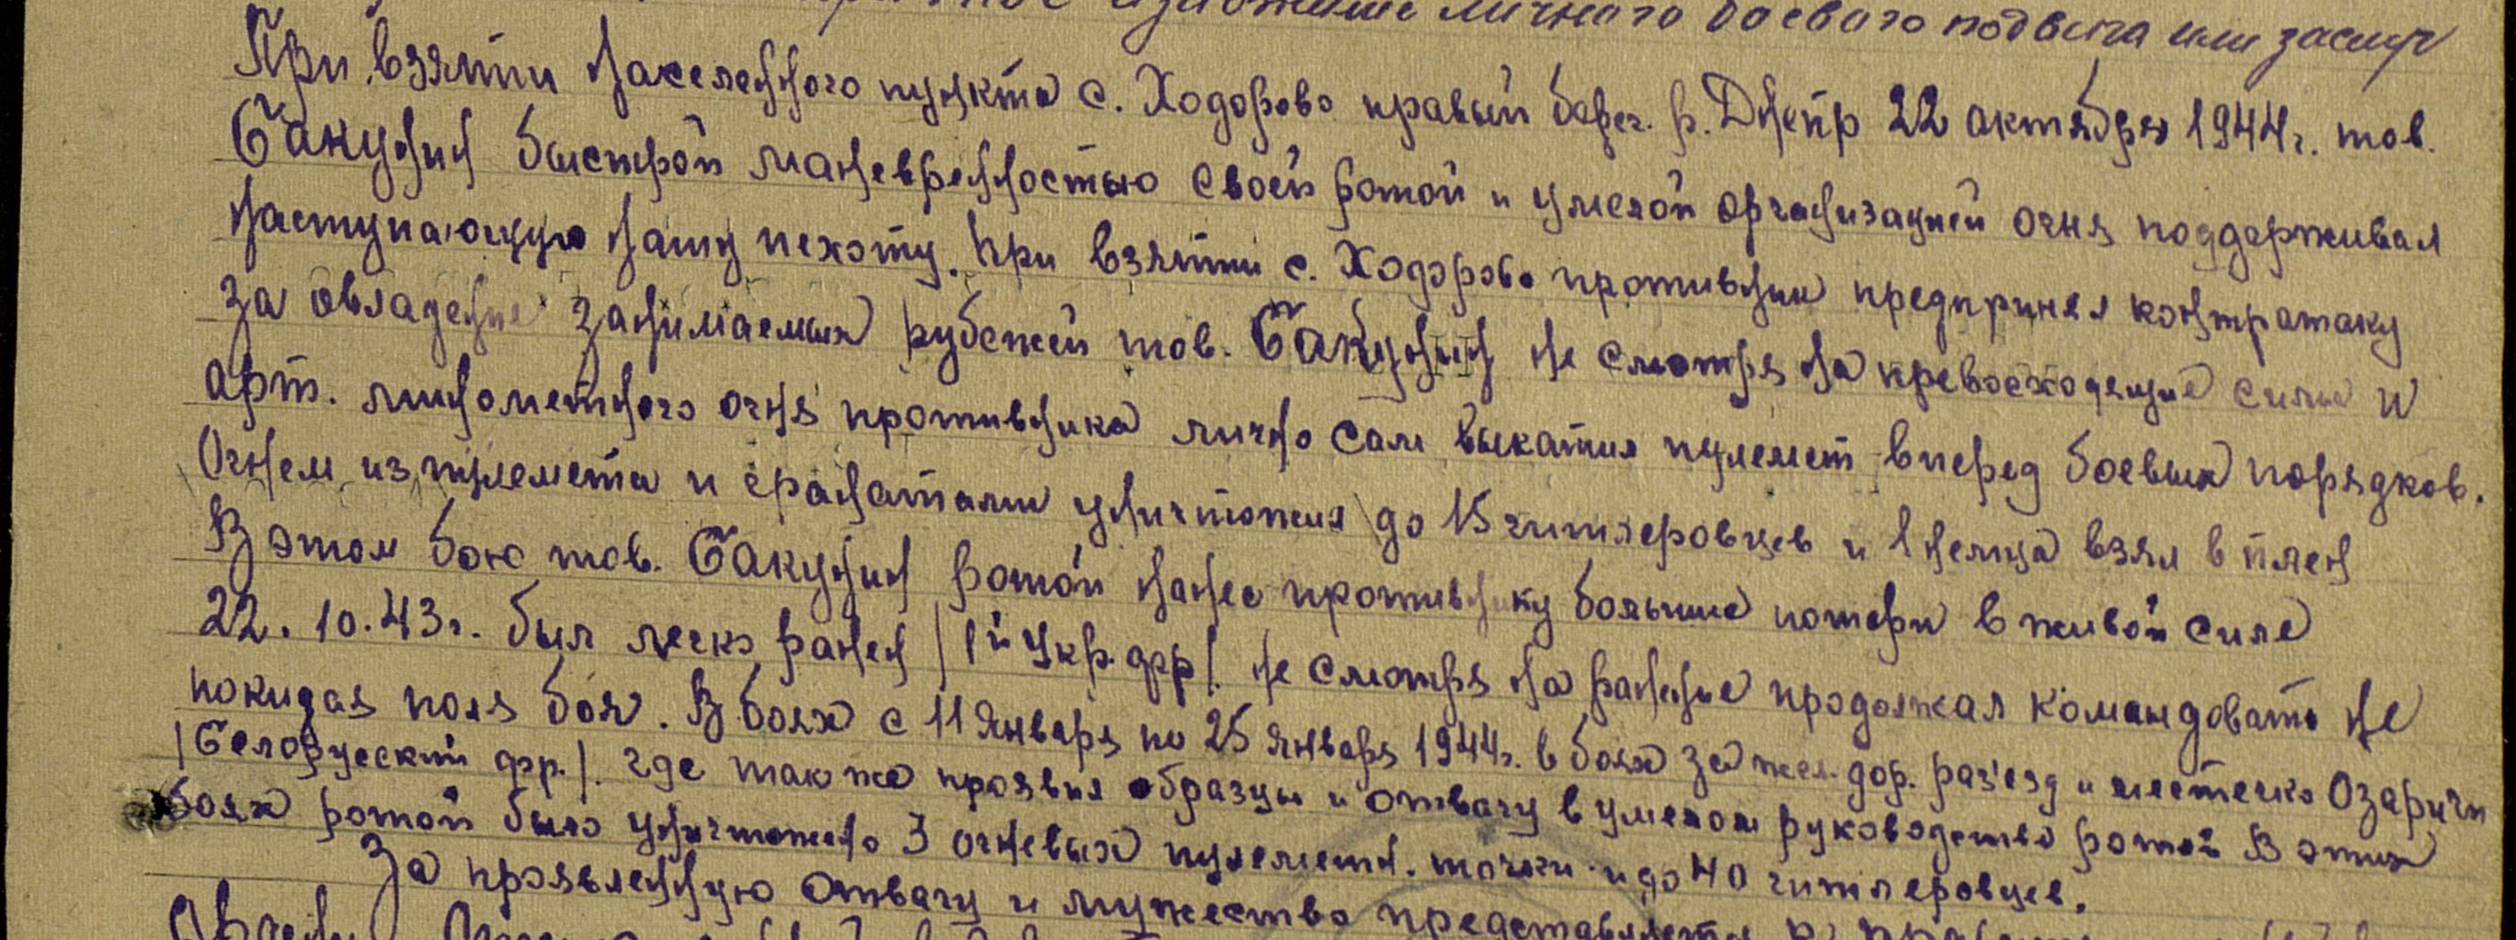 изложение личного боевого подвига или заслуг
При взятии населенного пункта с. Ходорово правый берег. р. Днепр 22 октября 1944г. тов.
Бакунин быстрой маневренностью своей ротой и умелой организацией огня поддерживал
наступающую нашу пехоту. При взятии с. Ходорово противник предпринял контратаку
за овладение занимаемых рубежей тов. Бакунин не смотря на превосходящие силы и
арт. минометного огня противника лично сам выкатил пулемет вперед боевых порядков.
Огнем из пулемета и гранатами уничтожил до 15 гитлеровцев и 1 немца взял в плен
В этом бою тов. Бакунин ротой нанес противнику большие потери в живой силе
22.10.43г. был легко ранен /1й Укр. фр/. не смотря на ранение продолжал командовать не
покидая поля боя. В боях с 11 января по 25 января 1944г. в боях за жел. дор. раз'езд и местечко Озаричи
/Белорусский фр./. где так же проявил образцы и отвагу в умелом руководстве ротой В этих
боях ротой было уничтожено 3 огневых пулеметн. точки и до 40 гитлеровцев.
За проявленную отвагу и мужество представляется к